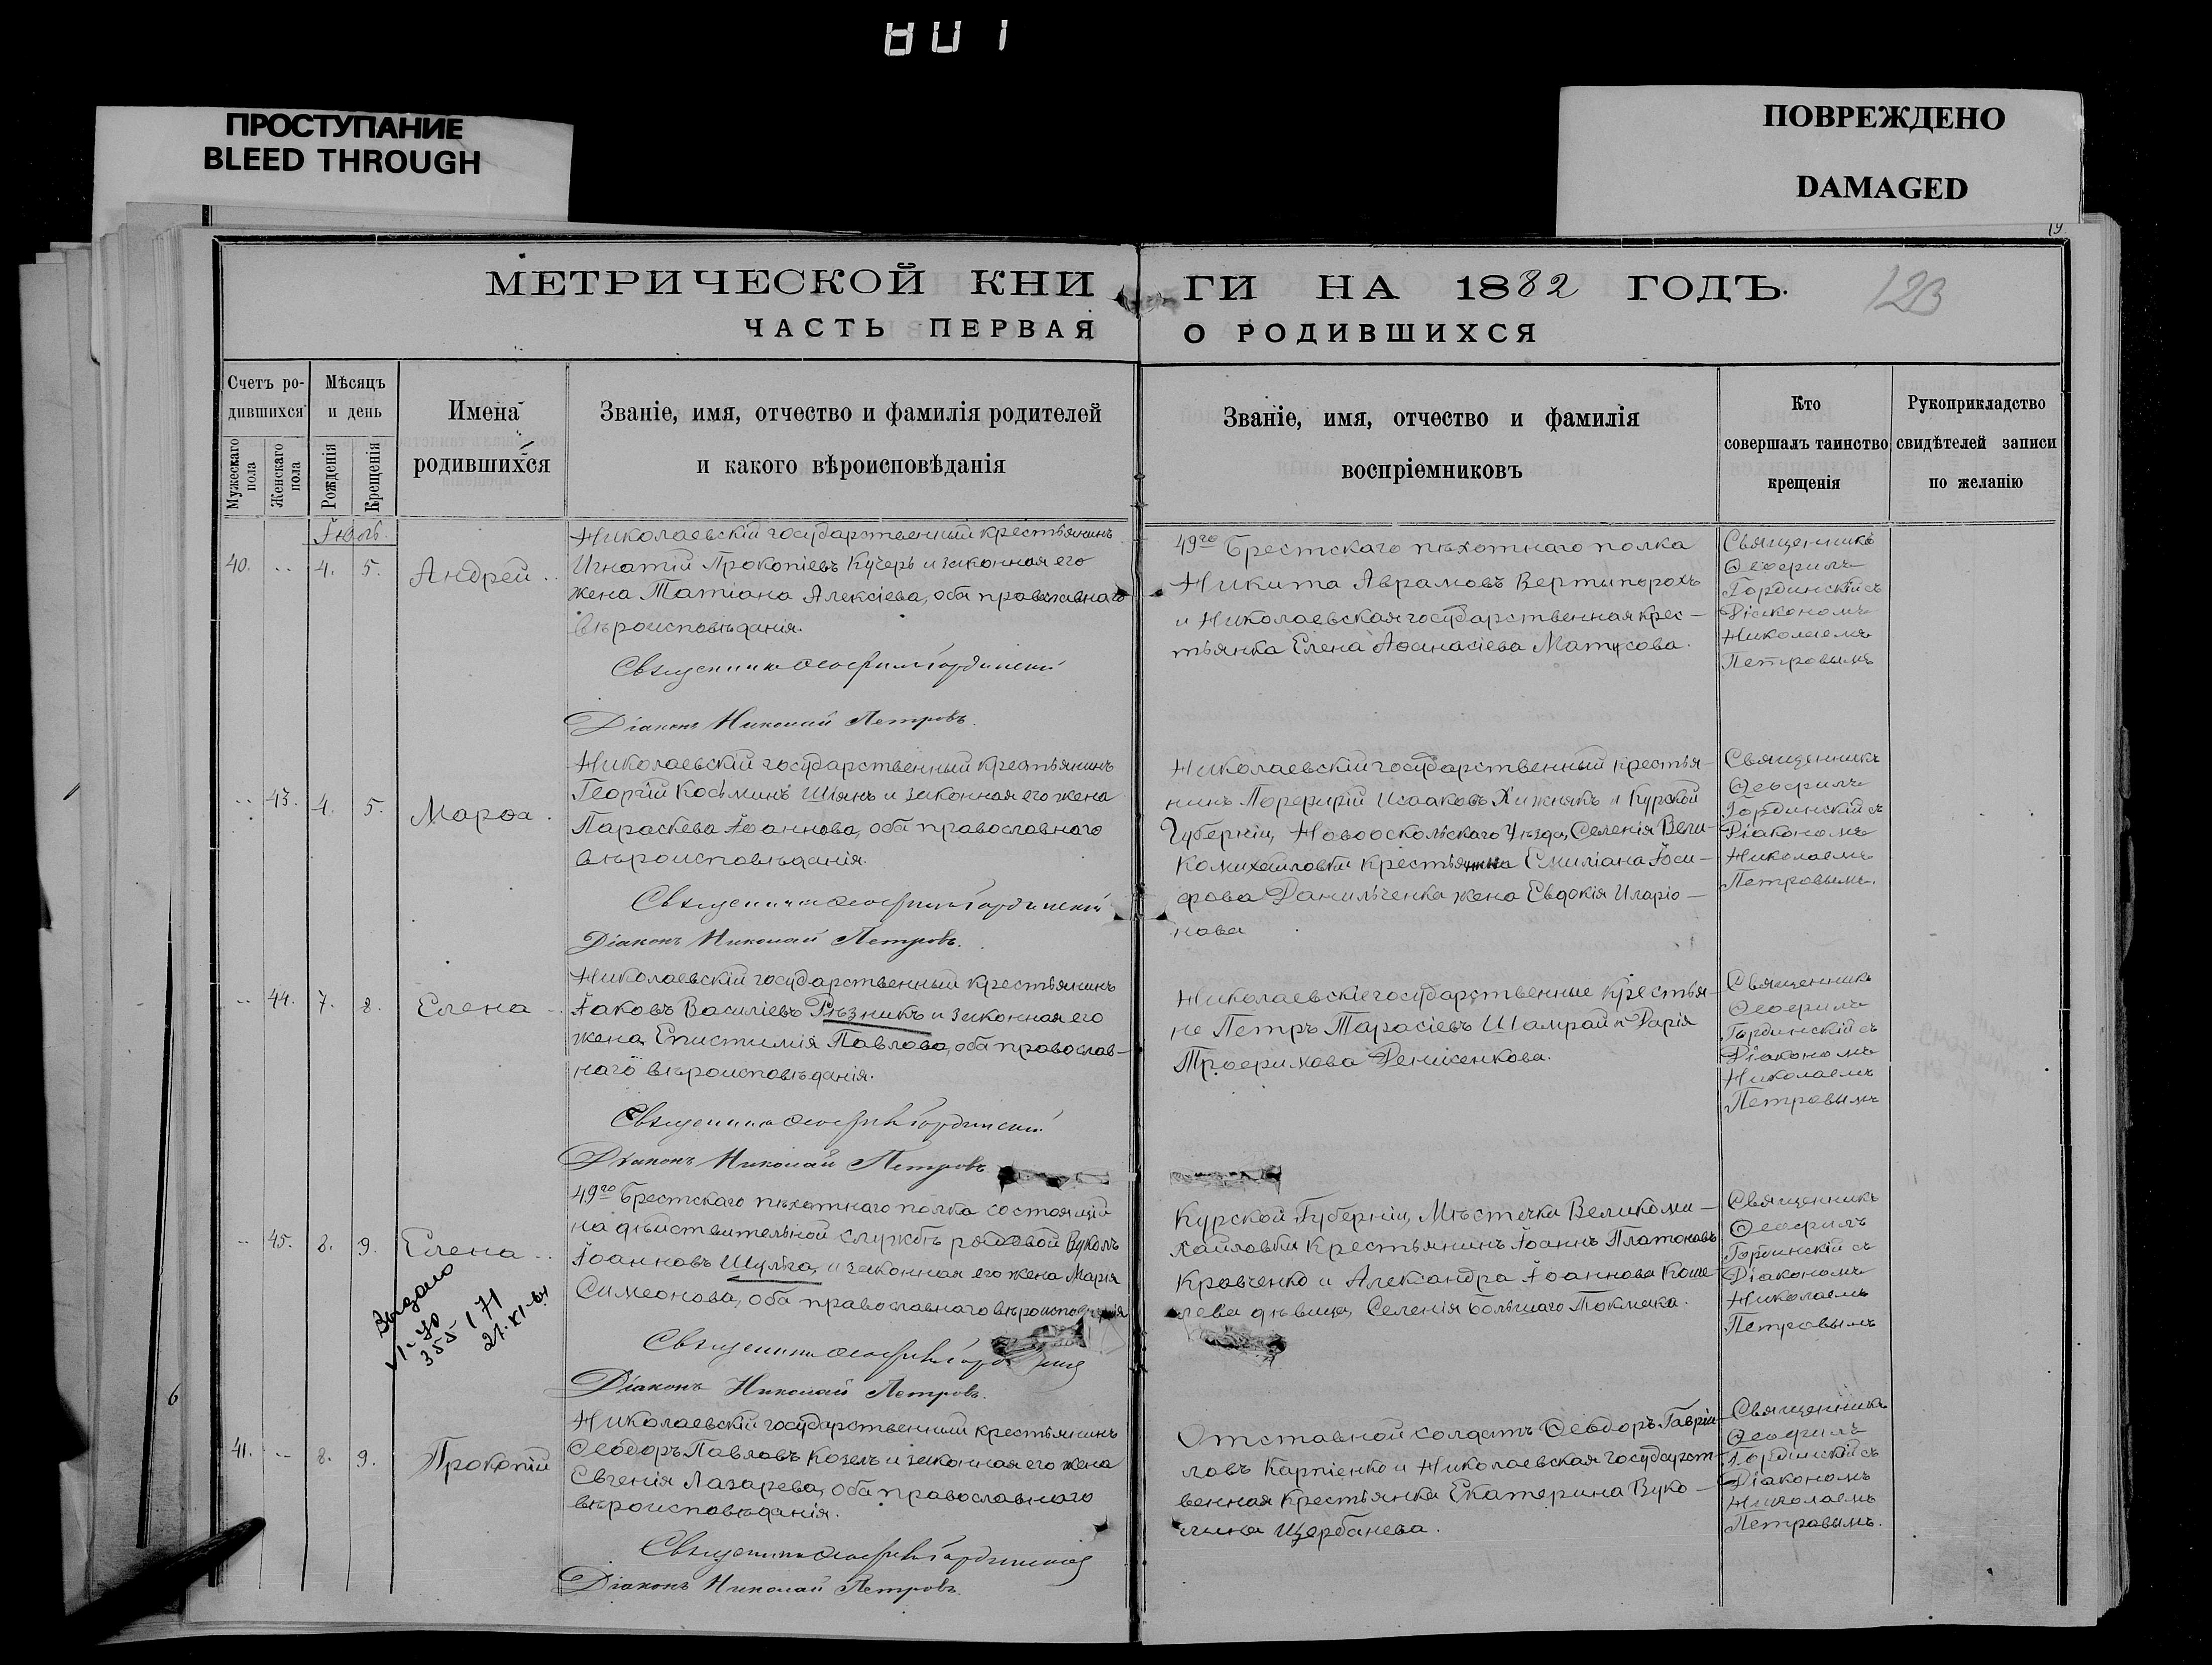 ПРОСТУПАНИЕ
BLEED THROUGH
ПОВРЕЖДЕНО
DAMAGED
МЕТРИЧЕСКОЙ КНИ
ГИ НА 1882 ГОДЪ.
123
ЧАСТЬ ПЕРВАЯ
О РОДИВШИХСЯ
Счетъ ро-
дившихся
Мужескаго пола
Женскаго пола
Мѣсяцъ
и день
Рожденія
Крещенія
Имена
родившихся
Званіе, имя, отчество и фамилія родителей
и какого вѣроисповѣданія
Званіе, имя, отчество и фамилія
воспріемниковъ
Кто
совершалъ таинство
крещенія
Рукоприкладство
свидѣтелей записи
по желанію
Іюль.
40. -- 4. 5. Андрей
Николаевскій государственный крестьянинъ
Игнатій Прокопіевъ Кучеръ и законная его
жена Татіана Алексіева, оба православнаго
вѣроисповѣданія.
Священникъ Ѳеофилъ Гординскій
Діаконъ Николай Петровъ.
49го Брестскаго пѣхотнаго полка
Никита Аврамовъ Вертипорохъ
и Николаевская государственная крес-
тьянка Елена Аѳанасіева Матусова.
Священникъ
Ѳеофилъ
Гординскій съ
Діакономъ
Николаемъ
Петровымъ
-- 43. 4. 5. Марѳа
Николаевскій государственный крестьянинъ
Георгій Косьминъ Шіянъ и законная его жена
Параскева Іоаннова, оба православнаго
вѣроисповѣданія.
Священникъ Ѳеофилъ Гординскій
Діаконъ Николай Петровъ.
Николаевскій государственный крестья-
нинъ Порфирій Исааковъ Хижнякъ и Курской
Губерніи, Новооскольскаго Уѣзда, Селенія Вели-
комихайловки крестьянина Емиліана Іоси-
фова Данильченка жена Евдокія Иларіо-
нова
Священникъ
Ѳеофилъ
Гординскій съ
Діакономъ
Николаемъ
Петровымъ.
-- 44. 7. 8. Елена
Николаевскій государственный крестьянинъ
Іаковъ Василіевъ Рѣзникъ и законная его
жена Епистимія Павлова, оба православ-
наго вѣроисповѣданія.
Священникъ Ѳеофилъ Гординскій
Діаконъ Николай Петровъ
Николаевскіе государственные крестья-
не Петръ Тарасіевъ Шамрай и Дарія
Трофимова Денисенкова.
Священникъ
Ѳеофилъ
Гординскій съ
Діакономъ
Николаемъ
Петровымъ
-- 45. 8. 9. Елена
Выдано
355 171
49го Брестскаго пѣхотнаго полка состоящій
на дѣйствительной службѣ рядовой Вуколъ
Іоанновъ Шульга, и законная его жена Марія
Симеонова, оба православнаго вѣроисповѣданія
Священникъ Ѳеофилъ
Діаконъ Николай Петровъ.
Курской Губерніи, Мѣстечка Великоми-
хайловки крестьянинъ Іоаннъ Платоновъ
Кравченко и Александра Іоаннова Коше-
лева дѣвица, Селенія Большаго Токмака.
Священникъ
Ѳеофилъ
Гординскій съ
Діакономъ
Николаемъ
Петровымъ
41. -- 8. 9. Прокопій
Николаевскій государственный крестьянинъ
Ѳеодоръ Павловъ Козелъ и законная его жена
Евгенія Лазарева, оба православнаго
вѣроисповѣданія.
Священникъ Ѳеофилъ Гординскій
Діаконъ Николай Петровъ.
Отставной солдатъ Ѳеодоръ Гаврии-
ловъ Карпенко и Николаевская государст-
венная крестьянка Екатерина Вуко-
лина Щербанева.
Священникъ
Ѳеофилъ
Гординскій съ
Діакономъ
Николаемъ
Петровымъ.